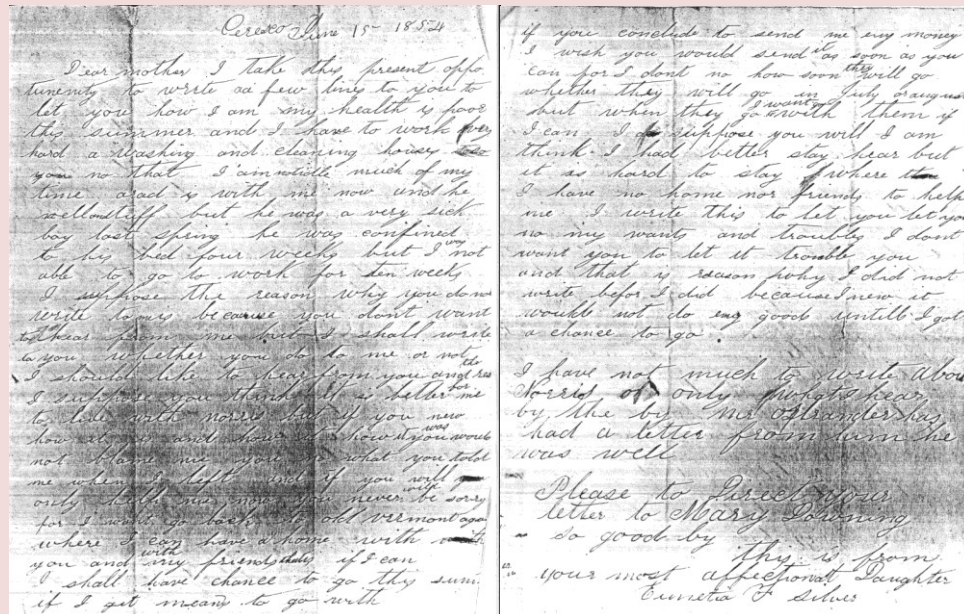 Ceresco June 15 1854
Dear mother I take this present oppo
tunenity to write aa few lines to you to
let you how I am my health is poor
this summer and I have to work very
hard a washing and cleaning houses
you no that I am notable much of my
time arad is with me now and he
well but he was a very sick
boy last spring he was confined
to his bed four weeks but I was not
able to go to work for ten weeks
I suppose the reason why you dont
write to us because you dont want
to hear from me but I shall write
to you whether you do to me or not
I should like to hear from you and the res
I suppose you think it is better for me
to live with norris but if you new
how it is and how it was you would
not blame me you no what you told
me when I left and if you will
only help me you never will be sorry
for I want go back to old vermont again
where I can have a home with
you and with my friends if I can
I shall have chance to go this sum
if I get means to go with
if you conclude to send me eny money
I wish you would send it as soon as you
can for I dont no how soon they will go
whether they will go in July or augus
but when they go I want with them if
I can I suppose you will I am
think I had better stay hear but
it is hard to stay where
I have no home nor friends to help
me I write this to let you let you
no my wants and troubles I dont
want you to let it trouble you
and that is reason why I did not
write befor I did because I new it
would not do eny good untill I got
a chance to go
I have not much to write abou
Norris only what I hear
by the by mr ostrander has
had a letter from him he
was well
Please to Direct your
letter to Mary Downing
so good by
this is from
your most affectionat Daughter
Eunetia F Silver